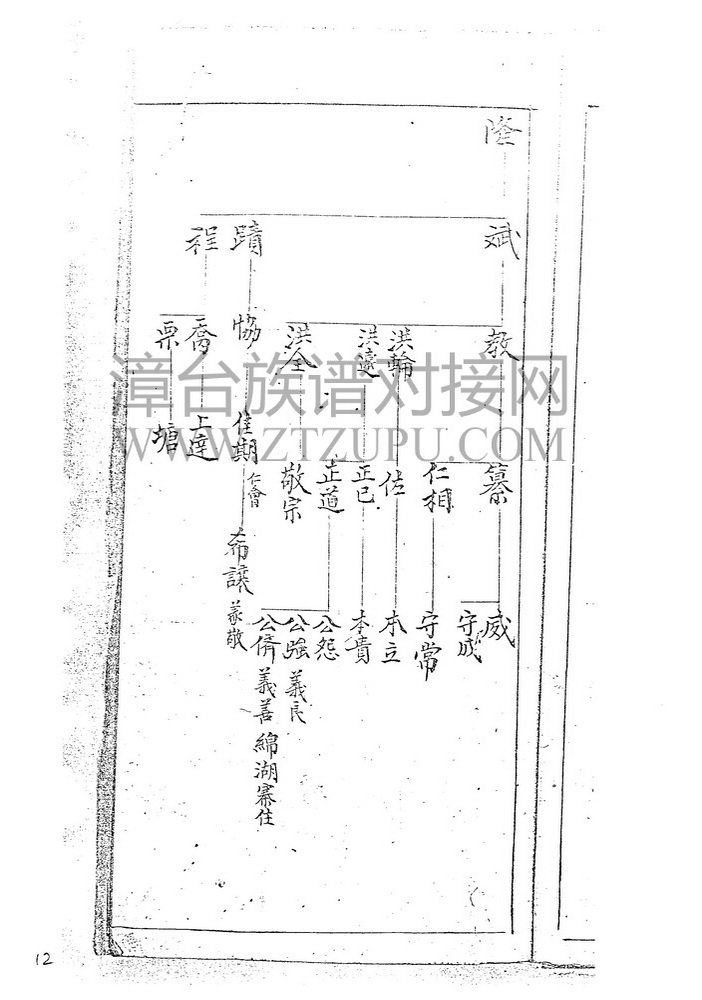 隆
斌
蹟
程
教
洪輪
洪遠
洪全
協
喬
栗
纂
仁相
佐
正已
正道
敬宗
佳期 仁會
上達
塘
威
守成
守常
本立
本貴
公怨
公強 義良
公脩 義善 綿湖寨住
希讓 義敬
漳台族谱对接网
WWW.ZTZUPU.COM
12